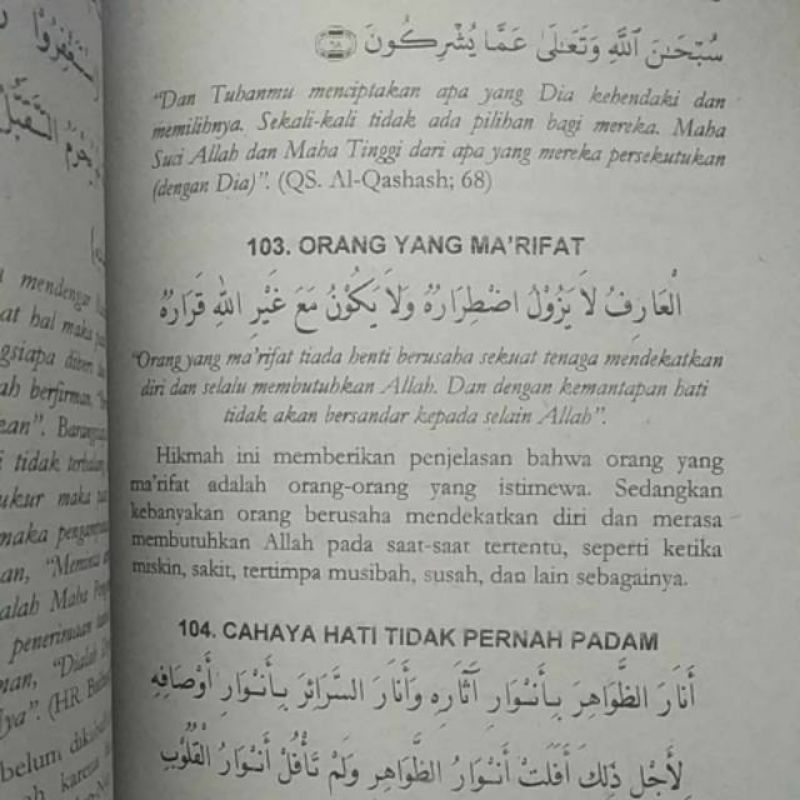 سُبْحَـٰنَ ٱللَّهِ وَتَعَـٰلَىٰ عَمَّا يُشْرِكُونَ ٦٨
"Dan Tuhanmu menciptakan apa yang Dia kehendaki dan
memilihnya. Sekali-kali tidak ada pilihan bagi mereka. Maha
Suci Allah dan Maha Tinggi dari apa yang mereka persekutukan
(dengan Dia)". (QS. Al-Qashash; 68)
103. ORANG YANG MA'RIFAT
الْعَارِفُ لاَ يَزُوْلُ اضْطِرَارُهُ وَلاَ يَكُوْنُ مَعَ غَيْرِ اللهِ قَرَارُهُ
"Orang yang ma'rifat tiada henti berusaha sekuat tenaga mendekatkan
diri dan selalu membutuhkan Allah. Dan dengan kemantapan hati
tidak akan bersandar kepada selain Allah".
Hikmah ini memberikan penjelasan bahwa orang yang
ma'rifat adalah orang-orang yang istimewa. Sedangkan
kebanyakan orang berusaha mendekatkan diri dan merasa
membutuhkan Allah pada saat-saat tertentu, seperti ketika
miskin, sakit, tertimpa musibah, susah, dan lain sebagainya.
104. CAHAYA HATI TIDAK PERNAH PADAM
أَنَارَ الظَّوَاهِرَ بِأَنـْوَارِ آثَارِهِ وَأَنَارَ السَّرَائِرَ بِـأَنـْوَارِ أَوْصَافِهِ
لِأَجْلِ ذٰلِكَ أَفَلَتْ أَنـْوَارُ الظَّوَاهِرِ وَلَمْ تَأْفُلْ أَنـْوَارُ الْقُلُوْبِ
mendengar
at hal maka
gsiapa diberi
ah berfirman,
an". Barangsiapa
i tidak
ukur maka
maka
an, "Meminta
alah Maha
penerimaan
man, "Dialah
ya". (HR.
belum
karena